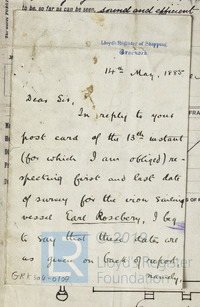 to be, so far as can be seen, sound and efficient
Lloyd's Register of Shipping,
Greenock
14th May, 1885
Dear Sir,
In reply to your
post card of the 13th instant
(for which I am obliged) re-
specting first and last date
of survey for the iron sailing
vessel Earl Rosebery, I beg
to say that these dates are
as given on back of report
namely,
Lloyd's Register
Foundation